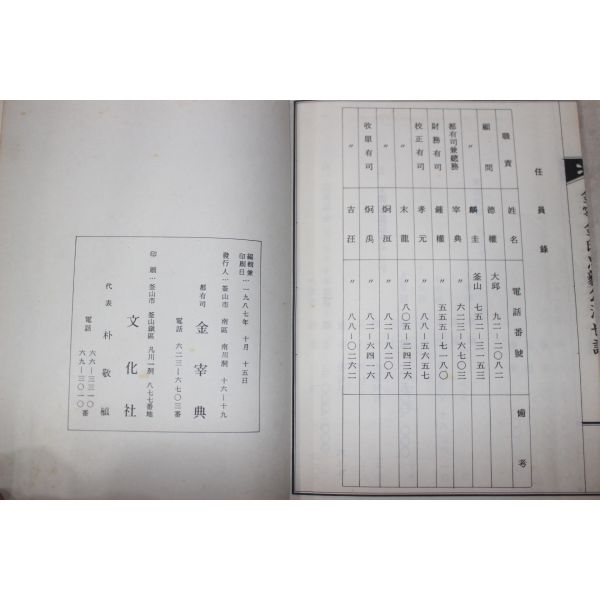 任員錄
職責 姓名 電話番號 備考
顧問 德權 大邱 九二—二〇八二
〃 麟圭 釜山 七五二—三一五三
都有司兼總務 宰典 〃 六二三—六七〇三
財務有司 鍾權 〃 五五五—七一八〇
校正有司 孝元 〃 八八—五六五七
〃 末龍 〃 八〇五—二四三六
〃 炯洹 〃 八二—八二〇八
收單有司 炯禹 〃 八二—六四一六
〃 吉汪 〃 八八—〇二六二
編輯兼
印刷日…一九八七年 十月 十五日
發行人…釜山市 南區 南川洞 十六—十九
都有司 金宰典
電話 六二三—六七〇三番
印刷…釜山市 釜山鎭區 凡川一洞 八七七番地
文化社
代表 朴敬植
電話 六六—三三一〇
六九—三〇一〇番